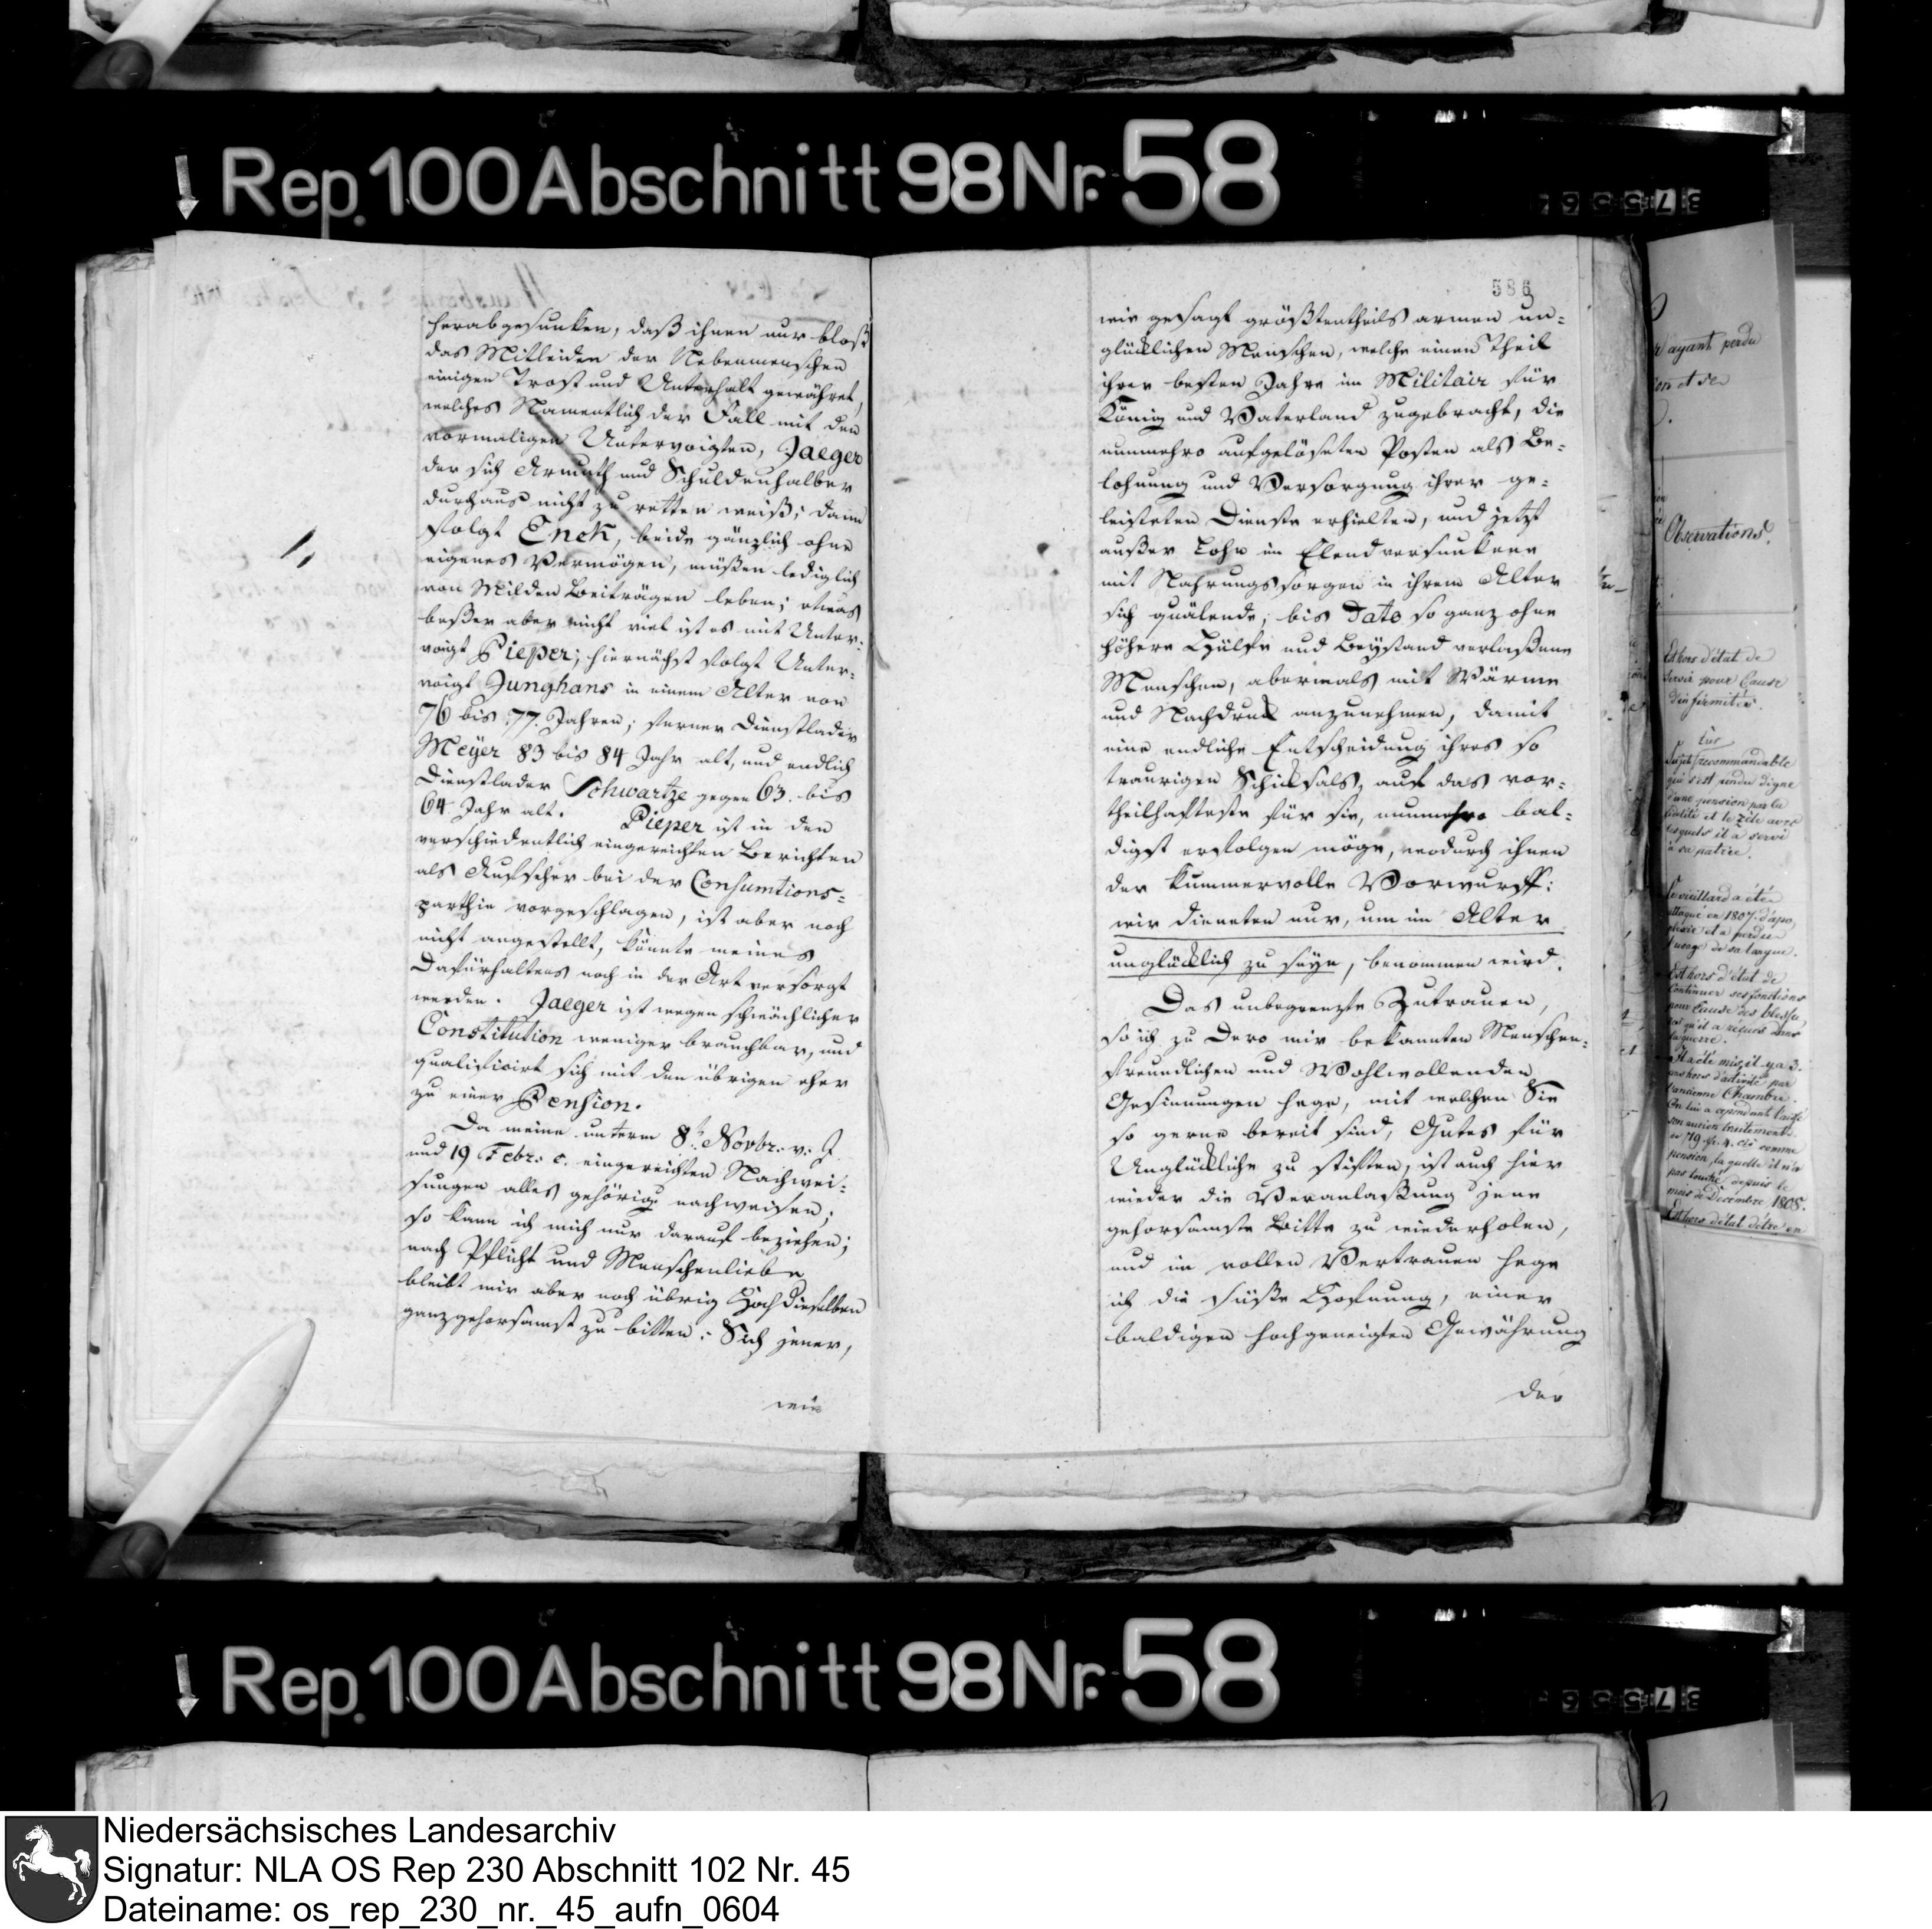 Rep. 100 Abschnitt 98 Nr. 58
herabgesunken, daß ihnen nur bloß
das Mitleiden der Nebenmenschen
einigen Trost und Unterhalt gewähret,
welches Namentlich der Fall mit den
vormaligen Untervoigten, Jaeger
der sich Armuth und Schuldenhalber
durchaus nicht zu retten weiß; dann
folgt Enck, beide gänzlich ohne
eigenes Vermögen, müßen lediglich
von Milden Beiträgen leben; etwas
beßer aber nicht viel ist es mit Unter=
voigt Pieper; hiernächst folgt Unter=
voigt Junghans in einem Alter von
76 bis 77. Jahren; ferner Dienstlader
Meyer 83 bis 84 Jahr alt, und endlich
Dienstlader Schwartze gegen 63. bis
64. Jahr alt. Pieper ist in den
verschiedentlich eingereichten Berichten
als Aufseher bei der Consumtions=
parthie vorgeschlagen, ist aber noch
nicht angestellt, könnte meines
Dafürhaltens noch in der Art versorgt
werden. Jaeger ist wegen schwächlicher
Constitution weniger brauchbar, und
qualificirt sich mit den übrigen eher
zu einer Pension.
Da meine unterm 8t. Novbr. v. J.
und 19 Febr. c. eingereichten Nachwei=
sungen alles gehörig nachweisen;
so kann ich mich nur darauf beziehen;
nach Pflicht und Menschenliebe
bleibt mir aber noch übrig Hochdieselben
ganzgehorsamst zu bitten: Sich jener,
wie
586
wie gesagt größtentheils armen un=
glücklichen Menschen, welche einen Theil
ihrer besten Jahre im Militair für
König und Vaterland zugebracht, die
nunmehro aufgelöseten Posten als Be=
lohnung und Versorgung ihrer ge=
leisteten Dienste erhielten, und jetzt
außer Lohn im Elend versunkene
mit Nahrungssorgen in ihrem Alter
sich quälende, bis Dato so ganz ohne
höhere Hülfe und Beystand verlaßene
Menschen, abermals mit Wärme
und Nachdruck anzunehmen, damit
eine endliche Entscheidung ihres so
traurigen Schicksals, auf das vor=
theilhafteste für sie, nunmehro bal=
digst erfolgen möge, wodurch ihnen
der kummervolle Vorwurff:
wir dieneten nur, um im Alter
unglücklich zu seyn, benommen wird.
Das unbegrenzte Zutrauen,
so ich zu Dero mir bekannten Menschen=
freundlichen und Wohlwollenden
Gesinnungen hege, mit welchen Sie
so gerne bereit sind, Gutes für
Unglückliche zu stiften, ist auch hier
wieder die Veranlaßung jene
gehorsamste Bitte zu wiederholen,
und im vollen Vertrauen hege
ich die süße Hofnung, einer
baldigen hochgeneigten Gewährung
der
ayant perdu
et ses
Observations.
Est hors d'état de
servir pour Cause
d'infirmités.
Sujet très recommandable
qui s'est rendu digne
d'une pension par la
fidélité et le zèle avec
lesquels il a servi
à sa patrie.
Ce vieillard a été
attaqué en 1807 d'apo
plexie et a perdu
l'usage de sa langue.
Est hors d'état de
continuer ses fonctions
pour Cause des blessu
res qu'il a reçues dans
la guerre.
Il a été mis il y a 3
ans hors d'activité par
l'ancienne Chambre.
On lui a cependant laissé
son ancien traitement
de 719 fr. 4. cs comme
pension, laquelle il n'a
pas touché depuis le
mois de Decembre 1808.
Est hors d'état d'être en
Rep. 100 Abschnitt 98 Nr. 58
Niedersächsisches Landesarchiv
Signatur: NLA OS Rep 230 Abschnitt 102 Nr. 45
Dateiname: os_rep_230_nr._45_aufn_0604